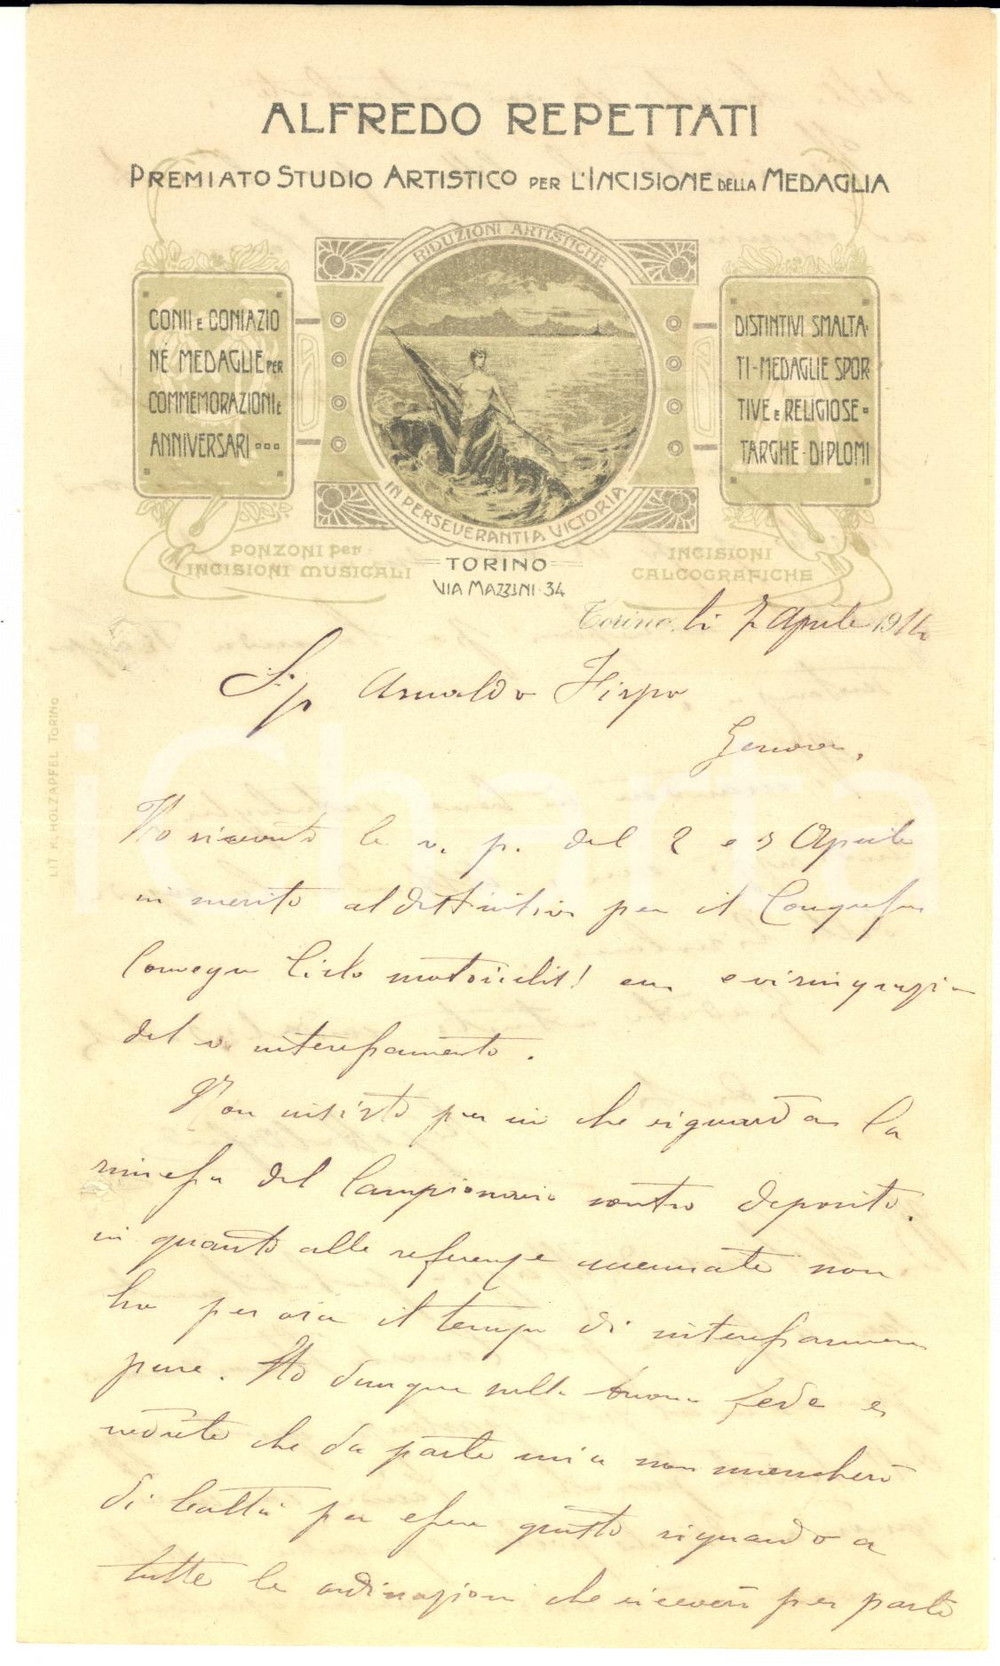 ALFREDO REPETTATI
PREMIATO STUDIO ARTISTICO PER L'INCISIONE DELLA MEDAGLIA
RIDUZIONI ARTISTICHE
CONII E CONIAZIO
NE MEDAGLIE PER
COMMEMORAZIONI E
ANNIVERSARI
DISTINTIVI SMALTA-
TI-MEDAGLIE SPOR
TIVE E RELIGIOSE-
TARGHE-DIPLOMI
IN PERSEVERANTIA VICTORIA
PONZONI PER
INCISIONI MUSICALI
TORINO
VIA MAZZINI·34
INCISIONI
CALCOGRAFICHE
Torino, li 7 Aprile 1914
Sig Arnaldo Firpo
Genova,
Ho ricevuto le v. p. del 2 e 3 Aprile
in merito ai distintivi per il Congresso
Convegno Ciclo motociclisti e vi ringrazio
del v. interessamento.
Non insisto per ciò che riguarda la
rimessa del Campionario contro deposito.
in quanto alle referenze accennate non
ho per ora il tempo di interessarmene
pure. Sto dunque nella buona fede e
vedrete che da parte mia non mancherò
di lealtà per essere giusto riguardo a
tutte le ordinazioni che riceverò per parte
LIT. K. HOLZAPFEL TORINO
iCharta